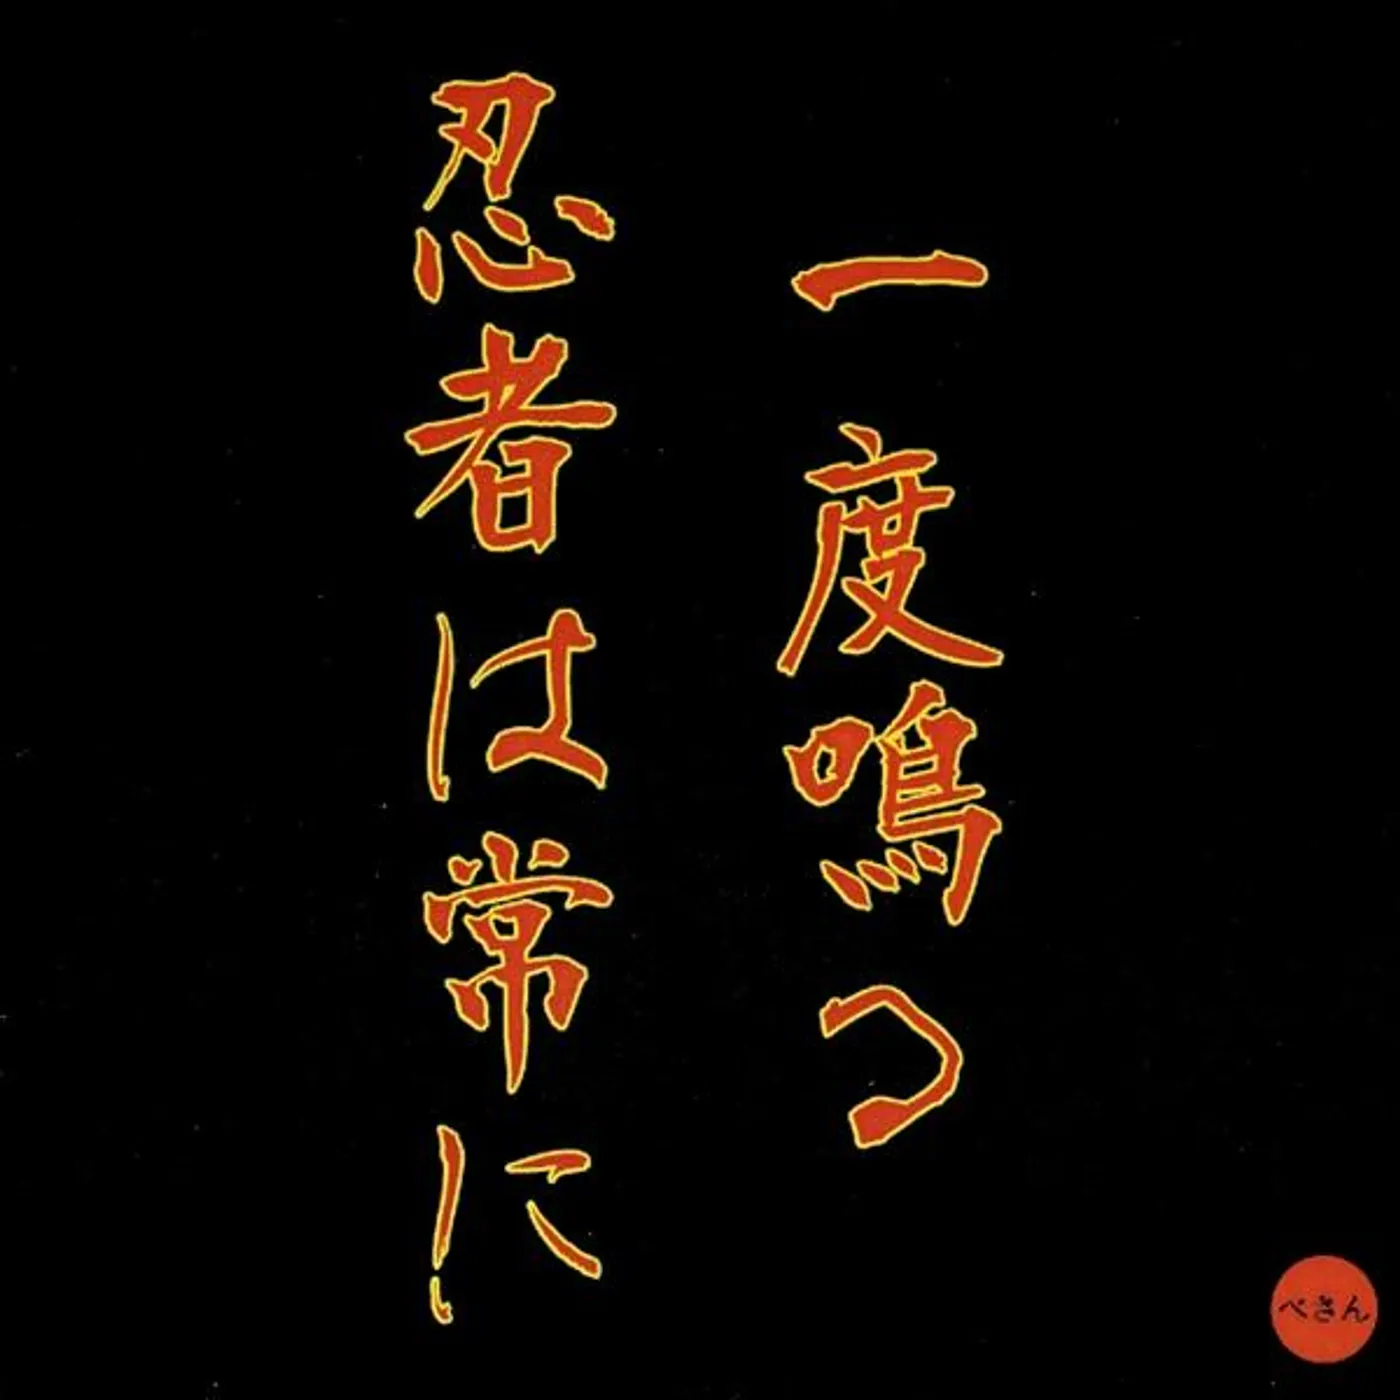 一度鳴つ
忍者は常に
ぺさん